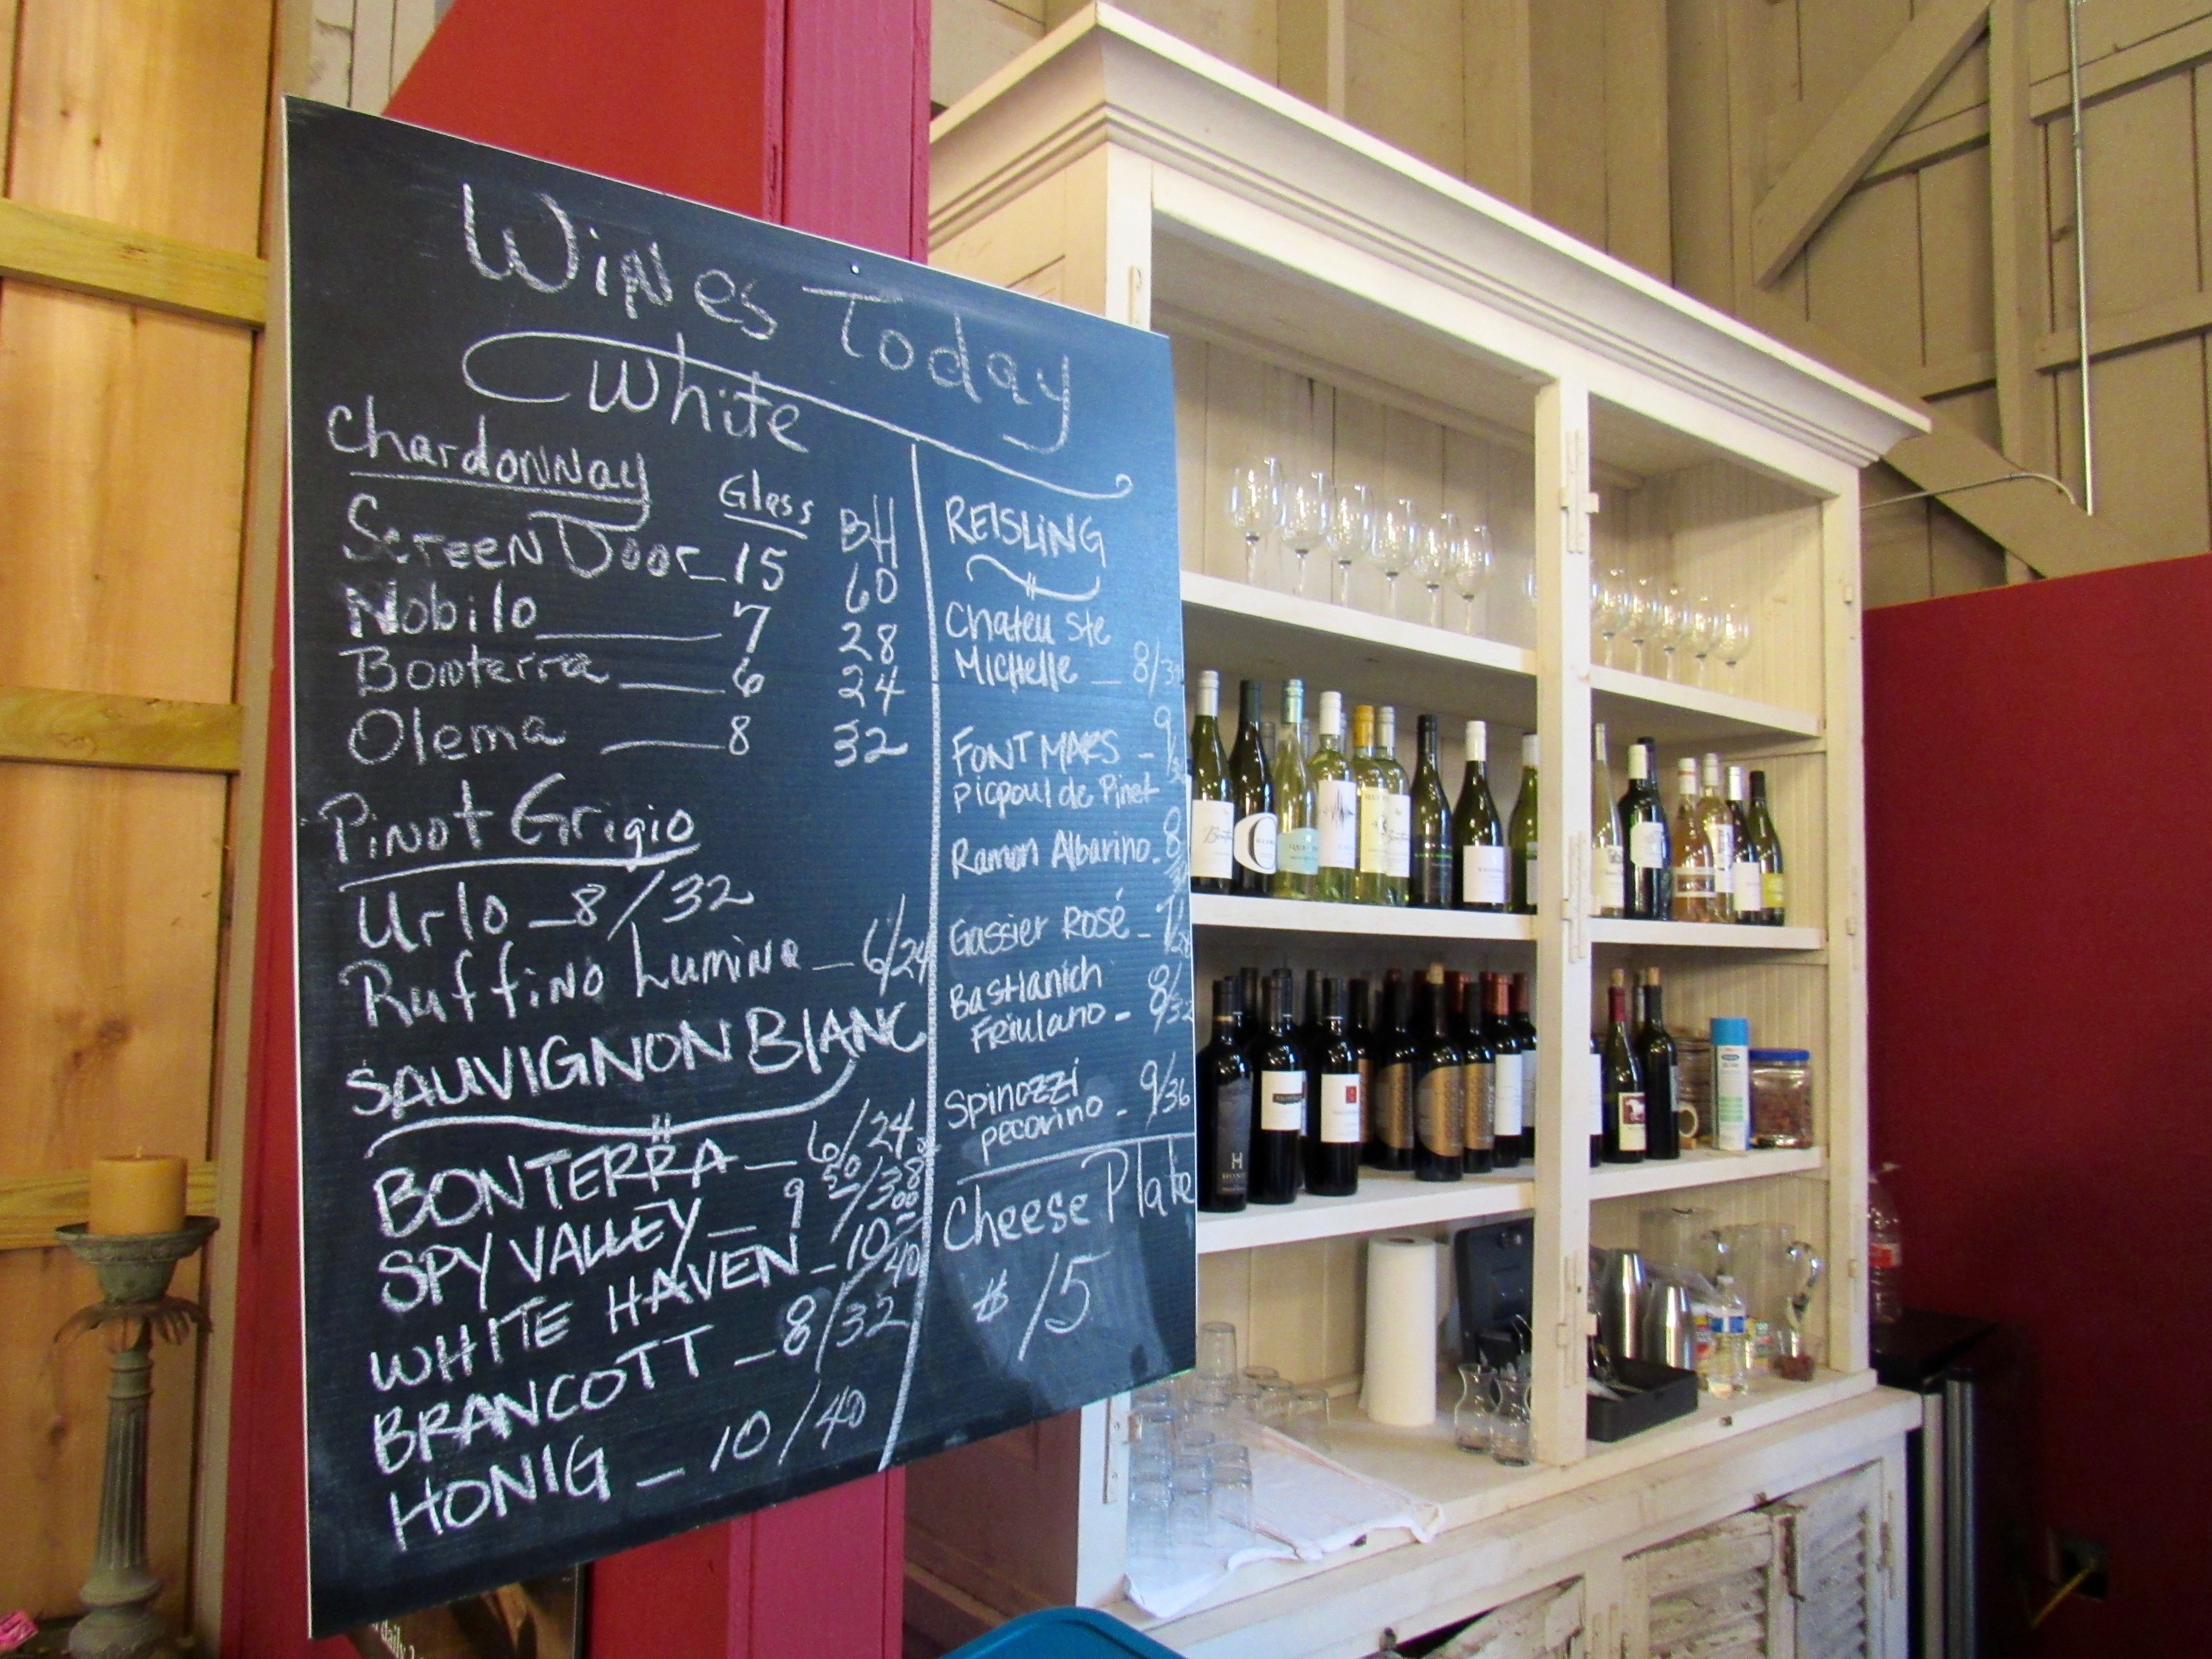 Wines Today
White
Chardonnay
Glass BH
Screen Door 15 60
Nobilo 7 28
Bonterra 6 24
Olema 8 32
Pinot Grigio
Urlo 8/32
Ruffino Lumina 6/24
SAUVIGNON BLANC
BONTERRA 6/24
SPY VALLEY 9 50/38 00
WHITE HAVEN 10/40
BRANCOTT 8/32
HONIG 10/40
REISLING
Chateu Ste
Michelle 8/
FONT MARS 9/
picpoul de Pinet
Ramon Albarino 8
Gassier Rosé
Bastianich
Friulano 8/32
Spinozzi
pecorino 9/36
Cheese Plate
$15